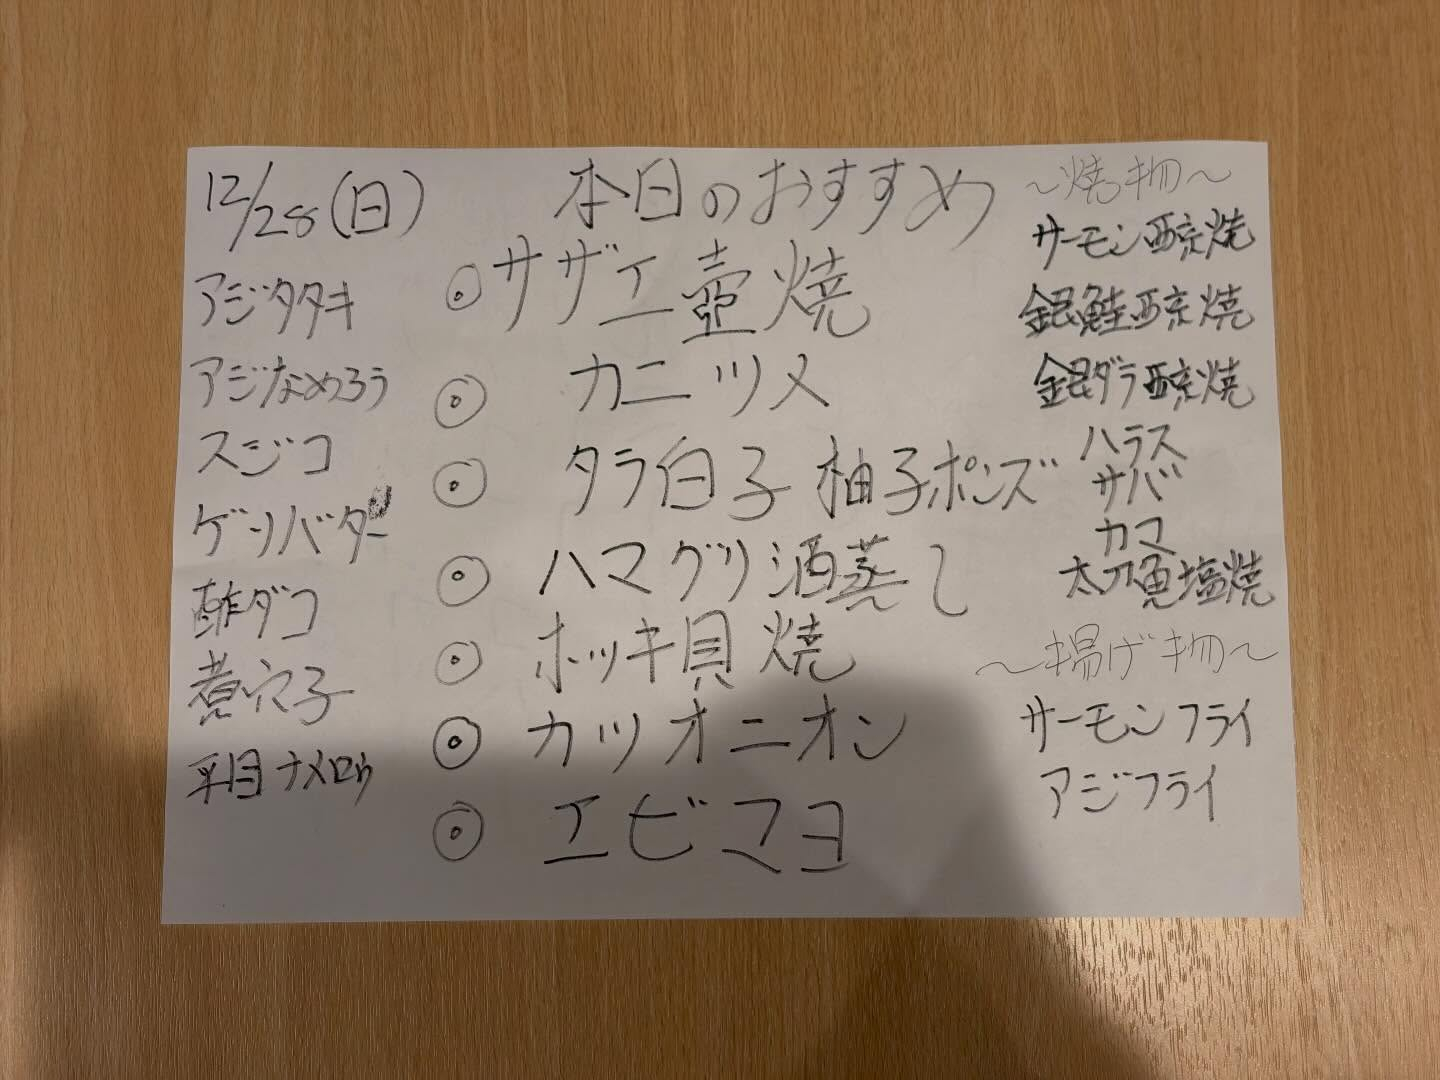 12/28(日)
本日のおすすめ
アジタタキ
アジなめろう
スジコ
ゲソバター
酢ダコ
煮穴子
平目ナメロウ
◎サザエ壺焼
◎カニツメ
◎タラ白子 柚子ポンズ
◎ハマグリ酒蒸し
◎ホッキ貝焼
◎カツオニオン
◎エビマヨ
〜焼物〜
サーモン西京焼
銀鮭西京焼
銀ダラ西京焼
ハラス
サバ
カマ
太刀魚塩焼
〜揚げ物〜
サーモンフライ
アジフライ